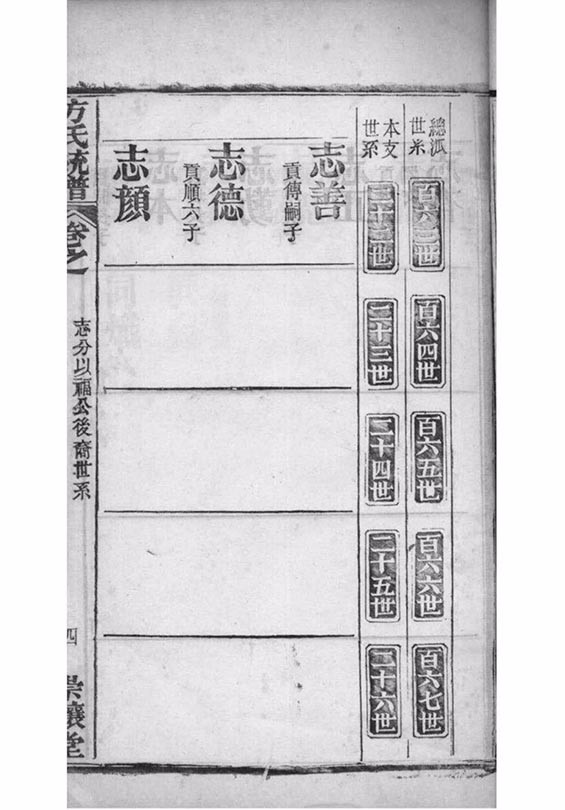 總派世系
百六三世
百六四世
百六五世
百六六世
百六七世
本支世系
二十二世
二十三世
二十四世
二十五世
二十六世
志善
貢傳嗣子
志德
貢順六子
志顏
方氏統譜
卷之
志分以福公後裔世系
四